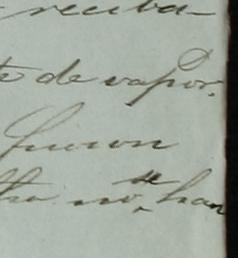 reciba-
te de vapor.
fueron
no, se han